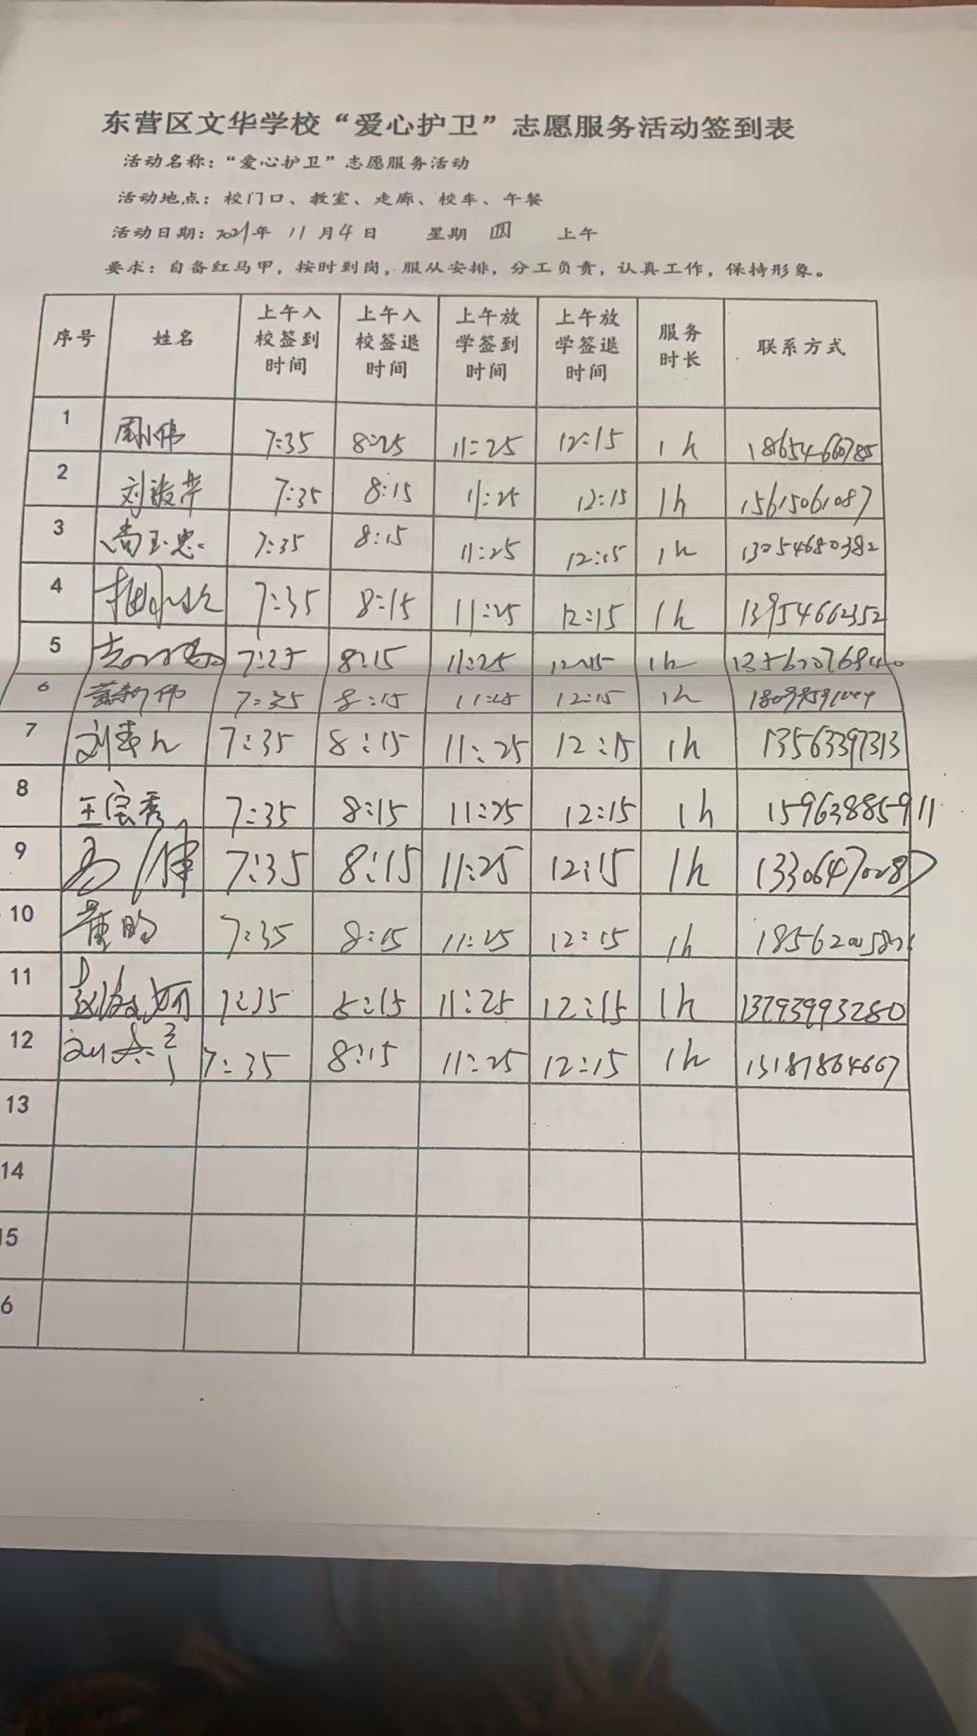 东营区文华学校“爱心护卫”志愿服务活动签到表
活动名称：“爱心护卫”志愿服务活动
活动地点：校门口、教室、走廊、校车、午餐
活动日期：2021年 11月4日 星期 四 上午
要求：自备红马甲，按时到岗，服从安排，分工负责，认真工作，保持形象。
序号 姓名 上午入校签到时间 上午入校签退时间 上午放学签到时间 上午放学签退时间 服务时长 联系方式
1 周小伟 7:35 8:25 11:25 12:15 1h 18654660785
2 7:35 8:15 11:25 12:15 1h 15615061087
3 尚玉忠 7:35 8:15 11:25 12:15 1h 13054680382
4 7:35 8:15 11:25 12:15 1h 13954662352
5 7:25 8:15 11:25 12:15 1h
6 7:35 8:15 11:25 12:15 1h
7 7:35 8:15 11:25 12:15 1h 13563397313
8 王宝秀 7:35 8:15 11:25 12:15 1h 15963885911
9 7:35 8:15 11:25 12:15 1h 13306470287
10 7:35 8:15 11:25 12:15 1h
11 7:35 8:15 11:25 12:15 1h 13793993280
12 7:35 8:15 11:25 12:15 1h 13181864667
13
14
15
6